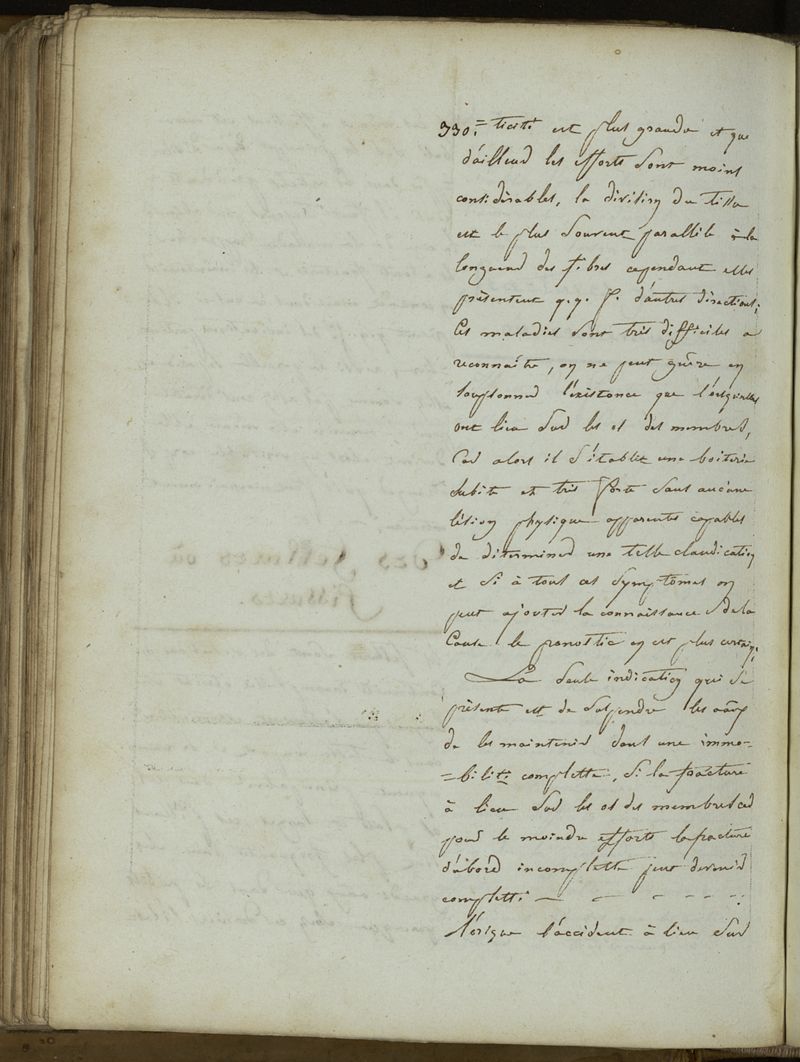 330.= ticité est plus grande et que
d'ailleur les efforts sont moins
considérables, la division du tissu
est le plus souvent parallèle à la
longueur des fibres cependant elles
présentent q.q. f. d'autres directions;
Ces maladies sont très difficiles a
reconnaître, on ne peut guère en
soupsonner l'existance que lorsqu'elles
ont lieu sur les os des membres,
Car alors il s'établit une boiterie
subite et très forte sans aucune
lésion physique apparentes capables
de déterminer une telle claudication
et Si à tout ces symptômes on
peut ajouter la connaissance de la
Cause le pronostic en est plus certain;
La seule indication qui se
présente est de suspendre les
de les maintenir dans une immo-
=bilité complette, Si la fracture
à lieu sur les os des membres car
pour le moindre efforts la fracture
d'abord incomplette peut devenir
complette
l'orsque l'accident à lieu sur